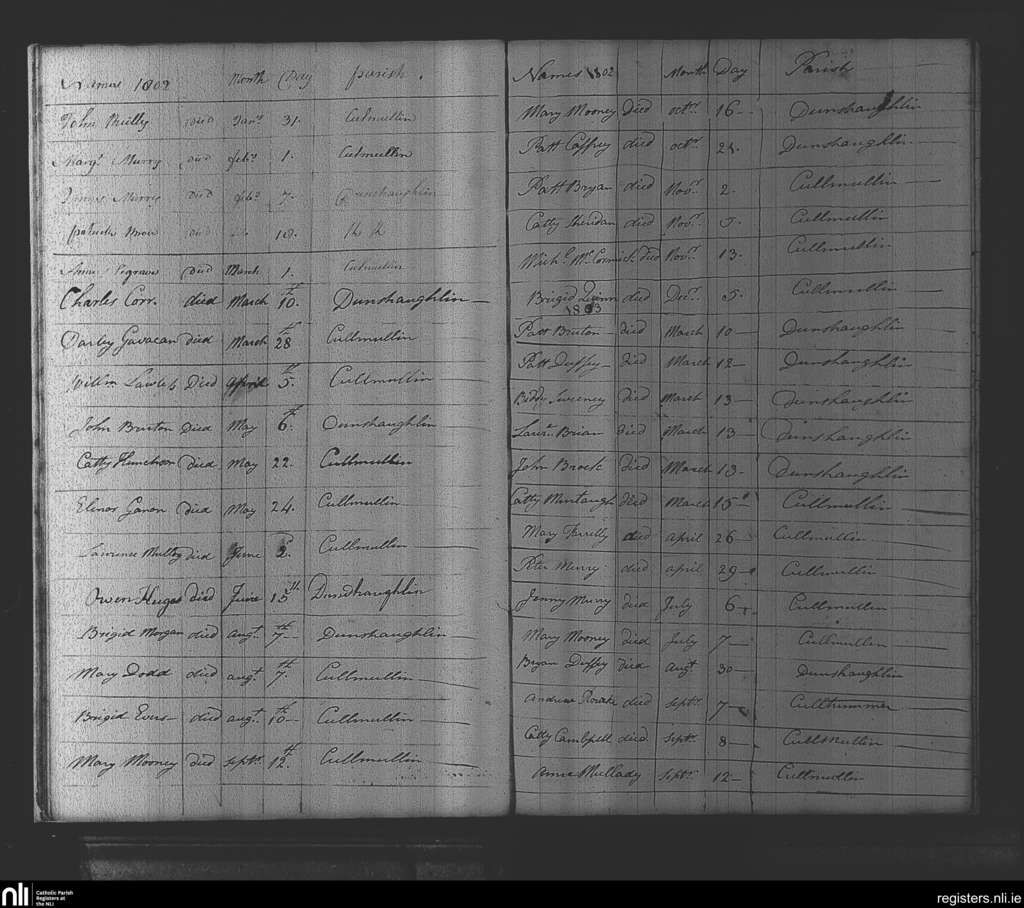 Names 1802 Month Day parish.
John Reilly died Jany. 31. Culmullin
Margt. Murry died feby. 1. Culmullin
James Murris died feby. 7. Dunshaughlin
patrick died 18.
Anne died March 1. Culmullin
Charles Corr. died March 10.th Dunshaughlin
Darley Gavacan died March 28th Cullmullin
Willm Lawless Died april 5.th Cullmullin
John Bruton Died May 6.th Dunshaughlin
Catty died May 22. Cullmullin
Elinor Ganon died May 24. Cullmullin
Lawrence died June 2. Cullmullin
Owen Huges died June 15th Dunshaughlin
Brigid Morgan died augt. 7th Dunshaughlin
Mary Dodd died augt. 7.th Cullmullin
Brigid Evers died augt. 10th Cullmullin
Mary Mooney died septr. 12.th Cullmullin
Names 1802 Month Day Parish
Mary Mooney died octr. 16 Dunshaughlin
Patt Caffrey died octr. 24. Dunshaughlin
Patt Bryan died Novr. 2. Cullmullin
Catty Sheridan died Novr. 5. Cullmullin
Michl. McCormick died Novr. 13. Cullmullin
Brigid Quinn died Decr. 5. Cullmullin
1803
Patt Bruton died March 10 Dunshaughlin
Patt Duffy died March 12 Dunshaughlin
Biddy Sweeney died March 13 Dunshaughlin
Laur. Brian died March 13 Dunshaughlin
John Brock died March 13 Dunshaughlin
Catty Murtaugh died March 15 Cullmullin
Mary Farrelly died april 26 Cullmullin
Peter Murry died april 29 Cullmullin
Jenny Murry died July 6 Cullmullin
Mary Mooney died July 7 Cullmullin
Bryan Duffey died Augt 30 Dunshaughlin
Andrew Rourke died septr. 7 Culltrummer
Catty Cambpell died septr. 8 Cullmullin
Anne Mullady septr. 12 Cullmullin
nli Catholic Parish
Registers at
the NLI
registers.nli.ie